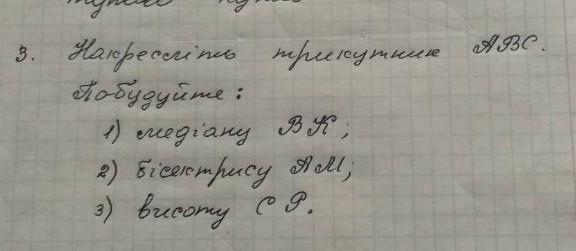 3. Накресліть трикутник АВС.
Побудуйте:
1) медіану ВК;
2) бісектрису АМ;
3) висоту СР.